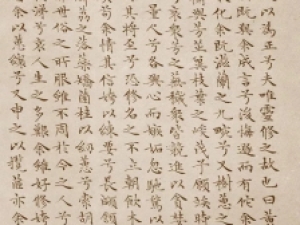 以為正兮夫唯靈修之故也曰黃
既與余成言兮後悔遁而有佗余
化余既滋蘭之九畹兮又樹蕙之
衡與芳芷冀枝葉之峻茂兮願竢時
兮哀眾芳之蕪穢眾皆競進以貪婪
量人兮各興心而嫉妬忽馳騖以
其將至兮恐修名之不立朝飲木
苟余情其信姱以練要兮長顑頷
荔之落蕊矯菌桂以紉蕙兮索胡
世俗之所服雖不周於今之人兮
涕兮哀人生之多艱余雖好修姱
余以蕙纕兮又申之以攬茝亦余